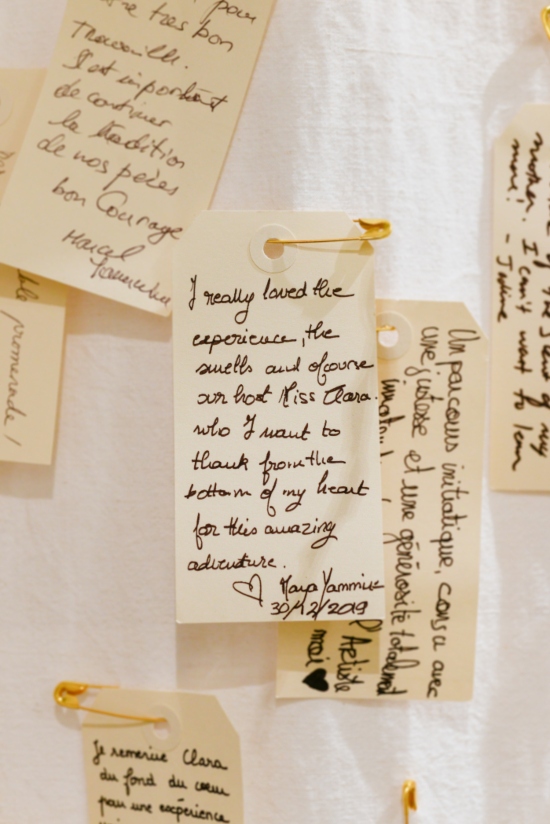 pour
tres bon
Travaille.
Il est important
de continuer
la tradition
de nos pères
bon Courage
Marcel
promenade!
I really loved the
experience, the
smells and ofcourse
our host Miss Clara.
who I want to
thank from the
bottom of my heart
for this amazing
adventure.
♡ Maya Yammine
30/12/2019
Un parcours initiatique, consu avec
une justesse et une générosité totalement
Artiste
♥
of my
mother. I can't wait to learn
more! - Joline
Je remercie Clara
du fond du coeur
pour une expérience